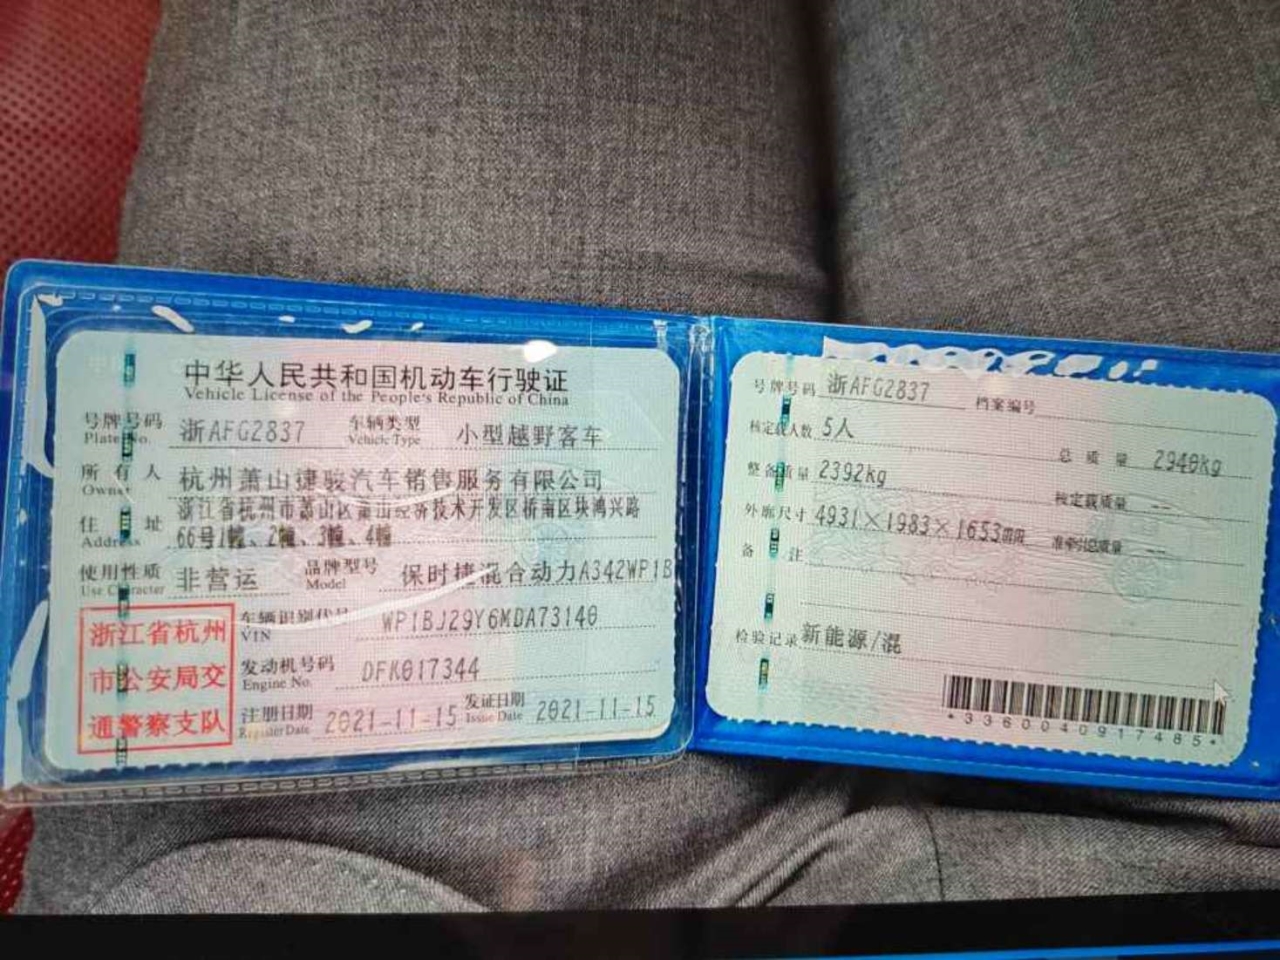 中华人民共和国机动车行驶证
Vehicle License of the People's Republic of China
号牌号码 浙AFG2837 车辆类型 小型越野客车
Plate No. Vehicle Type
所有人 杭州萧山捷骏汽车销售服务有限公司
Owner
住址 浙江省杭州市萧山区萧山经济技术开发区桥南区块鸿兴路
Address 66号1幢、2幢、3幢、4幢
使用性质 非营运 品牌型号 保时捷混合动力A342WP1B
Use Character Model
浙江省杭州
市公安局交
通警察支队
车辆识别代号 WP1BJ29Y6MDA73140
VIN
发动机号码 DFK017344
Engine No.
注册日期 2021-11-15 发证日期 2021-11-15
Register Date Issue Date
号牌号码 浙AFG2837 档案编号
核定载人数 5人 总质量 2940kg
整备质量 2392kg 核定载质量 --
外廓尺寸 4931×1983×1653mm 准牵引总质量 --
备注
检验记录 新能源/混
*3360040917485*